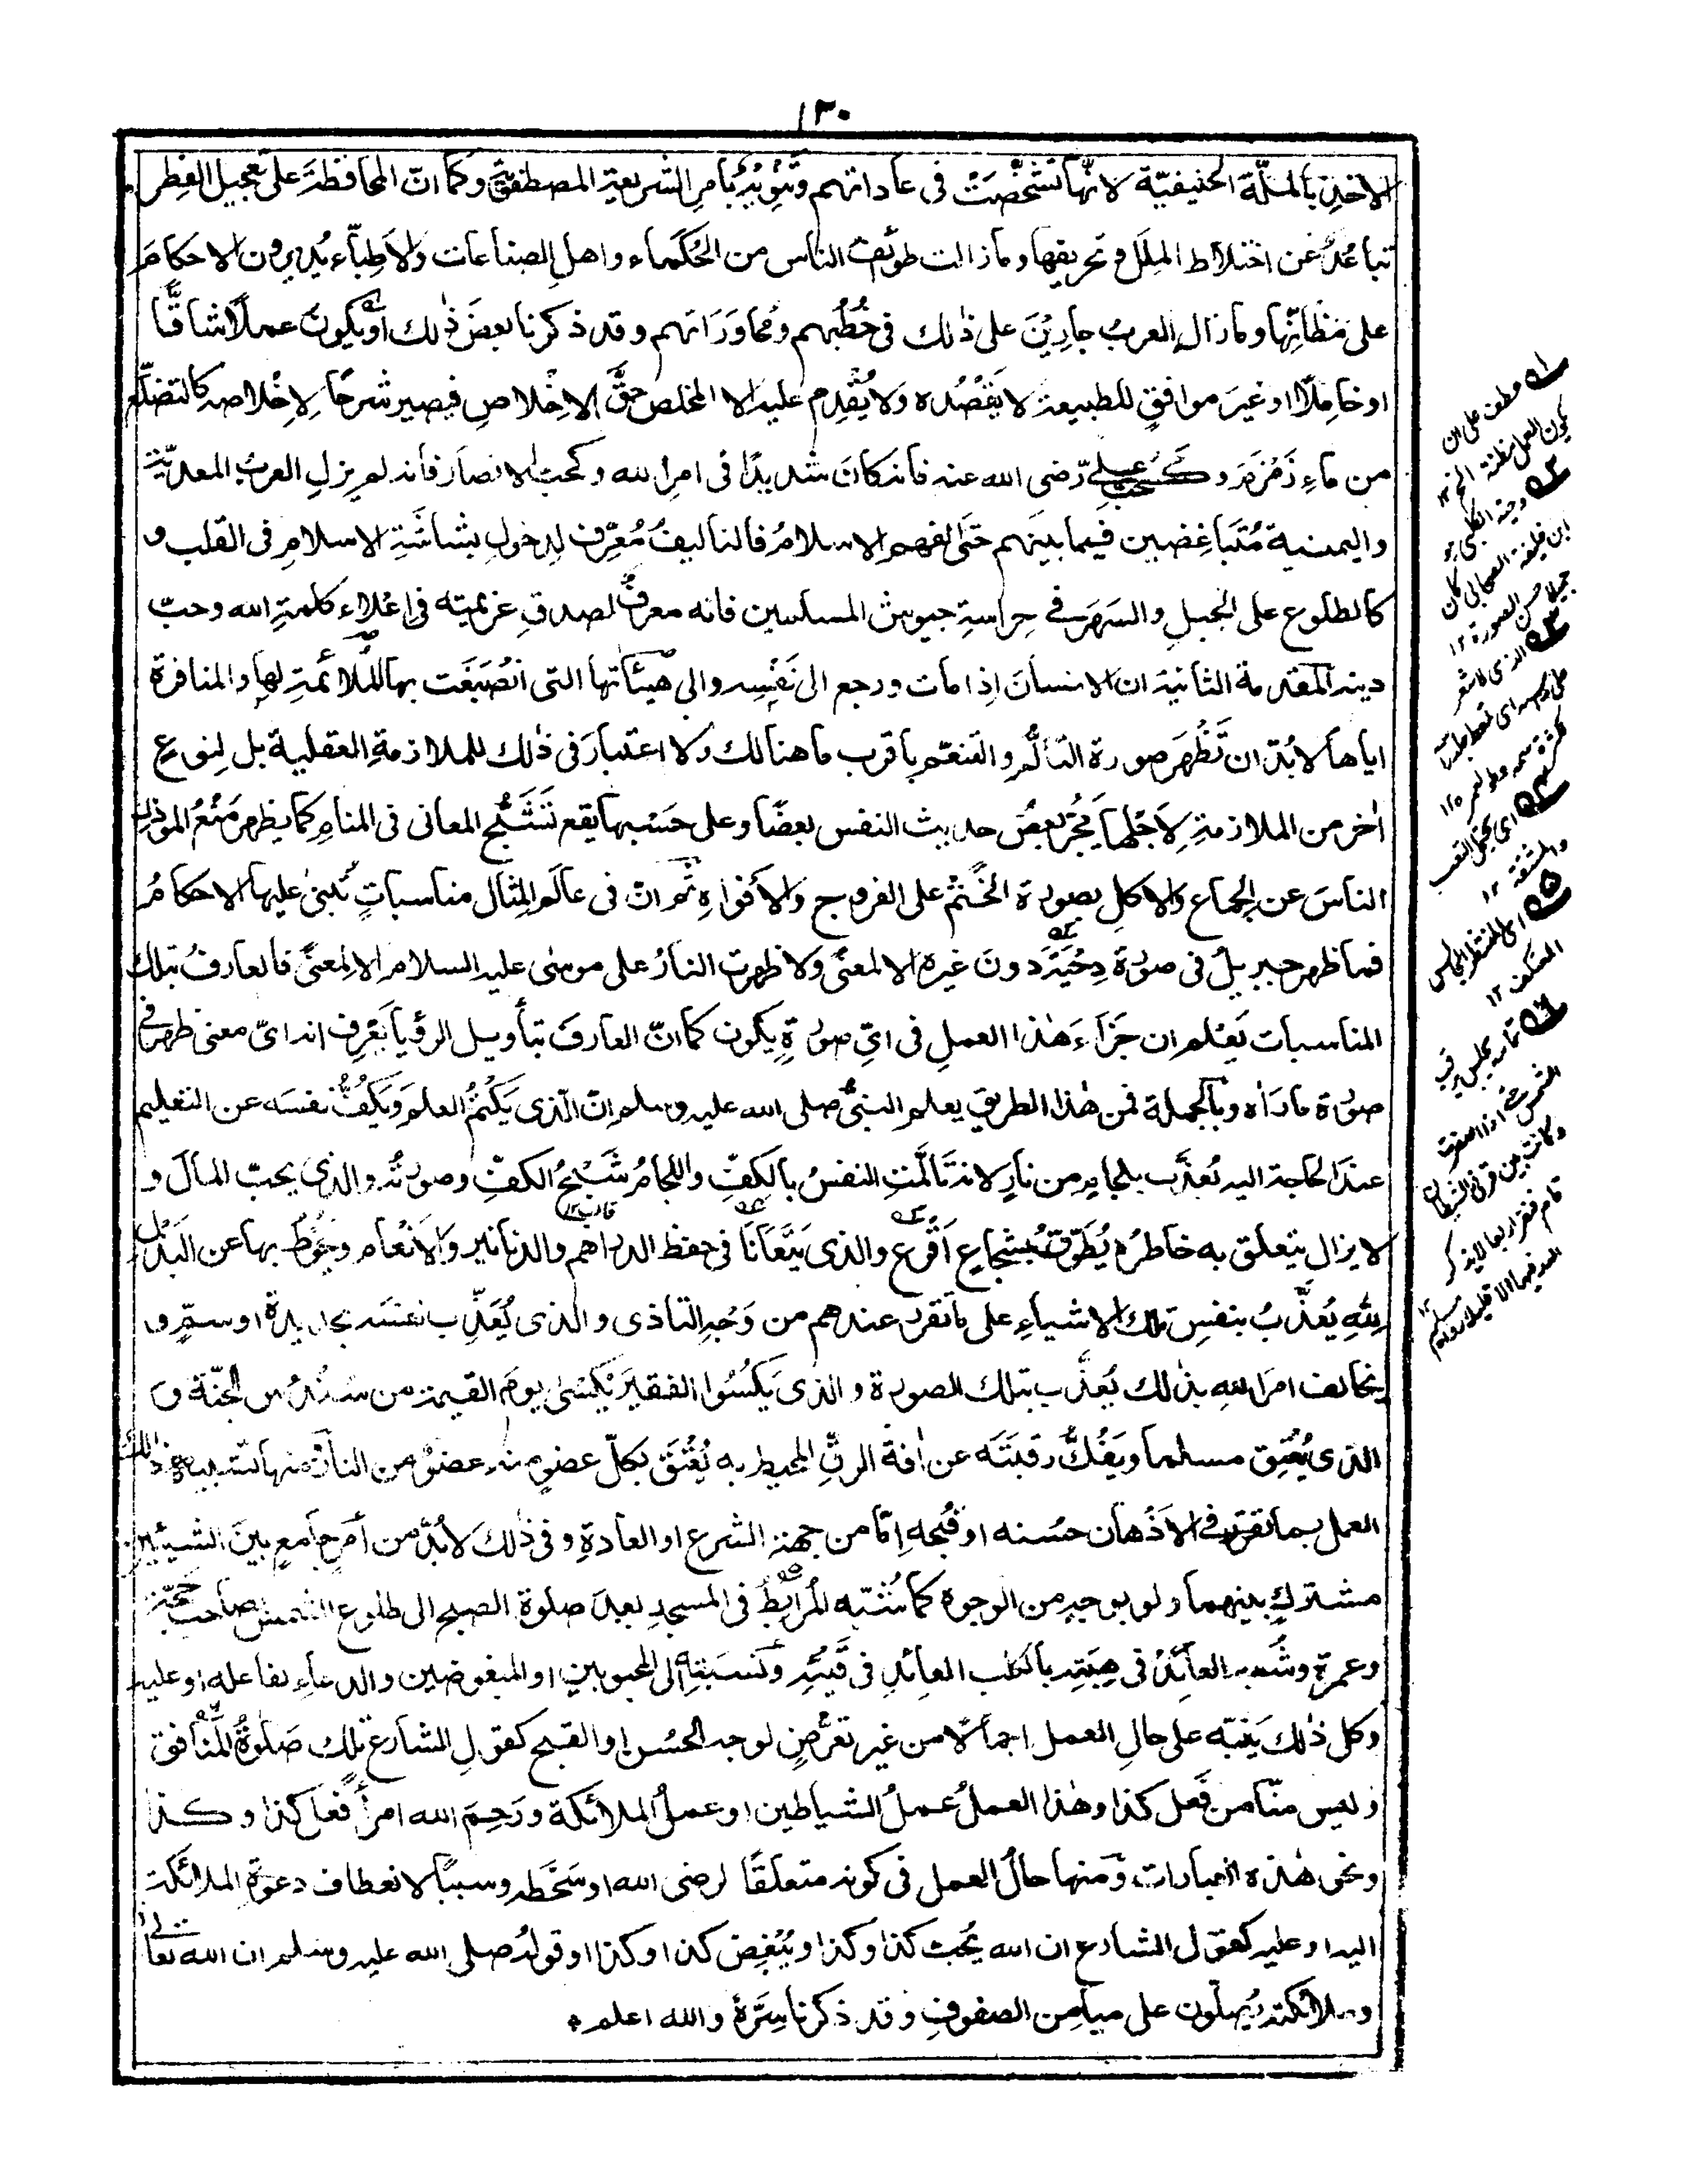 ١٣٠
الاخذِ بالملّة الحنيفيّة لانّها تشخّصت فى عاداتهم وتنويهٌ بامرِ الشريعةِ المصطفوية وكما انّ المحافظةَ على تعجيل الفِطر
تباعُدٌ عن اختلاط المِلَل وتحريفها ومازالت طوائف الناس من الحُكَماء واهلِ الصناعات والاَطِبّاء يُديرون الاحكامَ
على مَظانِّها ومازال العربُ جارِيْنَ على ذٰلك فى خُطَبهم ومُحاوَرَاتهم وقد ذكرنا بعضَ ذٰلك او يكونَ عملًا شاقًّا
اوخامِلًا اوغيرَ موافقٍ للطبيعة لا يَقْصُده ولا يُقْدِم عليه الا المخلص حقَّ الاِخْلاصِ فيصير شرحًا لِاخْلاصه كالتضلّع
من ماءِ زَمْزَمَ وكحُبّ علىٍّ رّضى الله عنه فانه كانَ شديدًا فى امرِ الله وكحبّ الانصار فانه لم يزلِ العربُ المعديّة
واليمنية مُتَباغِضين فيما بينهم حتّى الفهم الاسلامُ فالتاليفُ مُعَرِّف لدخولِ بشاشَةِ الاسلامِ فى القلب و
كالطلوع على الجبلِ والسَهَرِ فى حِراسةِ جيوش المسلمين فانه معرفٌ لصدقِ عزيمته فى اِعْلاء كلمةِ الله وحبّ
دينه المقدمة الثانية ان الانسانَ اِذا مات ورجع الى نَفْسِه والى هيئآتها التى انْصَبَغَت بها المُلائمةِ لها والمنافرة
اياها لابُدّ ان تَّظْهَرَ صورة التألُّم والتنعّم باقرب ما هنالك ولا اعتبارَ فى ذٰلك للملازمةِ العقلية بل لِنوعٍ
اٰخر من الملازمةِ لِاَجْلها يَجُرّ بعضُ حديث النفس بعضًا وعلى حَسْبها يقع تَشَبُّح المعانى فى المنامِ كما يظهر مَنْعُ المؤذن
الناسَ عن الجماع والاكلِ بصورة الخَتْم على الفروج والاَفْواهِ ثم انّ فى عالَم المِثال مناسباتٍ تُبنىٰ عليها الاحكامُ
فما ظهر جبريلُ فى صورة دِحْيَةَ دونَ غيره الا لمعنًى ولا ظهرت النارُ على موسٰى عليه السلام الا لِمعنًى فالعارفُ بتلك
المناسبات يَعْلم ان جَزآءَ هٰذا العملِ فى اىِّ صورةٍ يكون كما انّ العارفَ بتأويل الرؤيا يَعْرِف انه اىّ معنى ظهر فى
صورة ما رَاٰه وبالجملة فمن هٰذا الطريق يعلم النبىُّ صلى الله عليه وسلم انّ الّذى يَكْتُمُ العلمَ ويَكُفُّ نفسَه عن التعليم
عندَ الحاجة اليه يُعذَّب بلجامٍ من نارٍ لانه تَألَّمتِ النفسُ بالكَفّ واللجامُ شَبْحُ الكفّ وصورتُه والذى يحب المالَ و
لايزال يتعلق به خاطرُه يُطَوّقُ بشُجاعٍ اَقْرع والذى يَتَعَانٰا فى حفظ الدراهم والدنانير والاَنْعام ويَحُوْطُ بها عن البَذْلِ
لِلّٰهِ يُعَذَّبُ بنفسِ تلك الاشياءِ على ما تقرر عندهم من وَجْهِ التاذى والذى يُعَذِّب نفسَه بحديدة او سمٍّ و
يخالف امرَ اللهِ بذٰلك يُعذَّب بتلك الصورة والذى يَكْسُوا الفقيرَ يُكْسىٰ يومَ القيٰمة من سُنْدُس الجنّة و
الذى يُعْتِق مسلما ويَفُكُّ رقبَتَه عن اٰفة الرقّ المحيط به يُعْتَق بكلّ عضوٍ منه عضوٌ من النار ومنها تشبيه ذٰلك
العمل بما تقرّر فى الاَذْهان حُسنه او قُبحه اِمّا من جهة الشرع او العادةِ وفى ذٰلك لابُدَّ من اَمْرٍ جامعٍ بينَ الشيئين
مشتركٍ بينهما ولو بوجهٍ من الوجوه كما شُبّه المُرابِطُ فى المسجدِ بعدَ صلوة الصبح الى طلوع الشمس بصاحب حَجّة
وعمرةٍ وشُبه العائدُ فى هِبَتِه بالكلب العائِدِ فى قَيْئِه ونسبتِه الى المحبوبين او المبغوضين والدعاءِ لفاعله او عليه
وكل ذٰلك يَنبّه على حالِ العمل اِجمالًا من غير تعرّضٍ لوجه الحُسْن او القبح كقولِ الشارع تلك صَلوةُ المُنافق
وليس منّا من فَعل كذا وهٰذا العملُ عملُ الشياطين او عملُ الملائكة ورَحِمَ الله امرأً فعل كذا وكذا
ونحو هٰذه العبارات ومنها حالُ العمل فى كونه متعلقًا لرضى الله او سَخَطه وسببًا لانعطاف دعوةِ الملائكة
اليه او عليه كقول الشارع ان الله يُحِبّ كذا وكذا ويُبْغِض كذا وكذا او قولهُ صلى الله عليه وسلم ان الله تعالىٰ
وملائكته يُصلّون على ميامِن الصفوفِ وقد ذكرنا سِرَّهٗ والله اعلم *
عطف على ان
يكون العمل مظنة الخ ١٢
دحية الكلبى هو
ابن خليفة الصحابى كان
جميلا حسن الصورة ١٢
الذى لا شعر
على راسه اى تمعط جلد راسه
لكثرة سمه وطول عمره ١٢
اى يتحمل التعب
والمشقة ١٢
اى المنتظر الجالس
المعتكف ١٢
تمامه يجلس يرقب
الشمس حتى اذا اصفرت
وكانت بين قرنى الشيطان
قام فنقر اربعا لا يذكر
الله فيها الا قليلا رواه مسلم ١٢